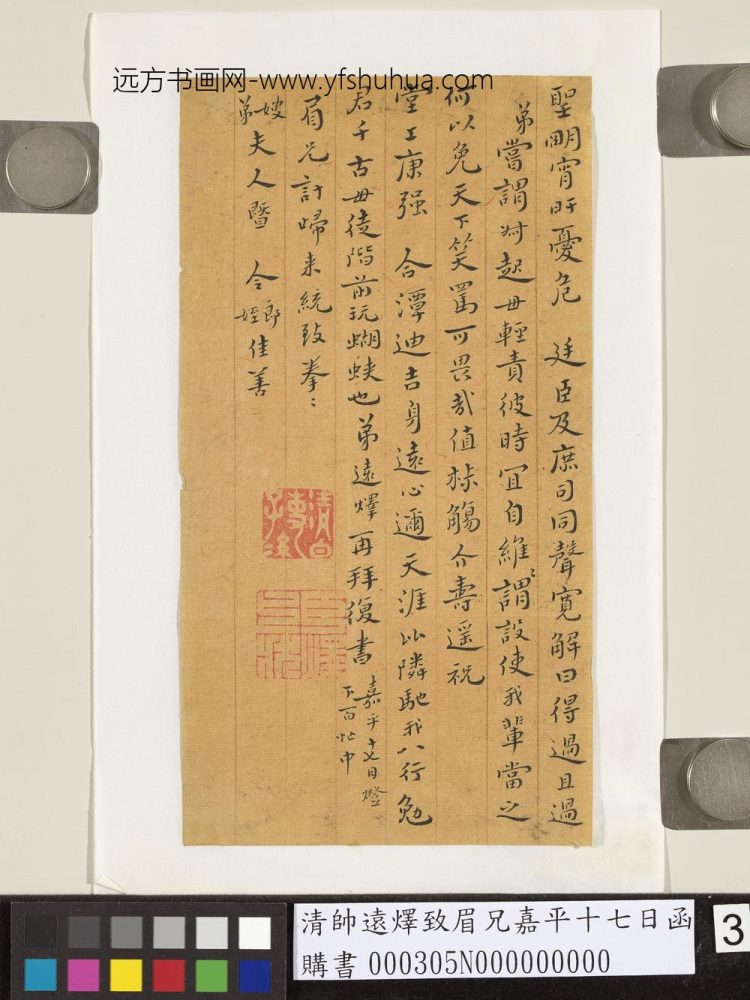 远方书画网-www.yfshuhua.com
聖明宵旰憂危 廷臣及庶司同聲寬解曰得過且過
弟嘗謂對起毋輕責彼時宜自維謂設使我輩當之
何以免天下笑罵可畏哉值椒觴介壽遥祝
堂上康强 合潭迪吉身遠心邇天涯比隣馳我八行勉
君千古毋徒階前玩蝴蛺也弟遠燡再拜復書 嘉平十七日燈
下百忙中
眉兄計歸来統致拳〻
嫂
弟夫人暨 令郎姪佳善
清白
清帥遠燡致眉兄嘉平十七日函
購書 000305N000000000
3